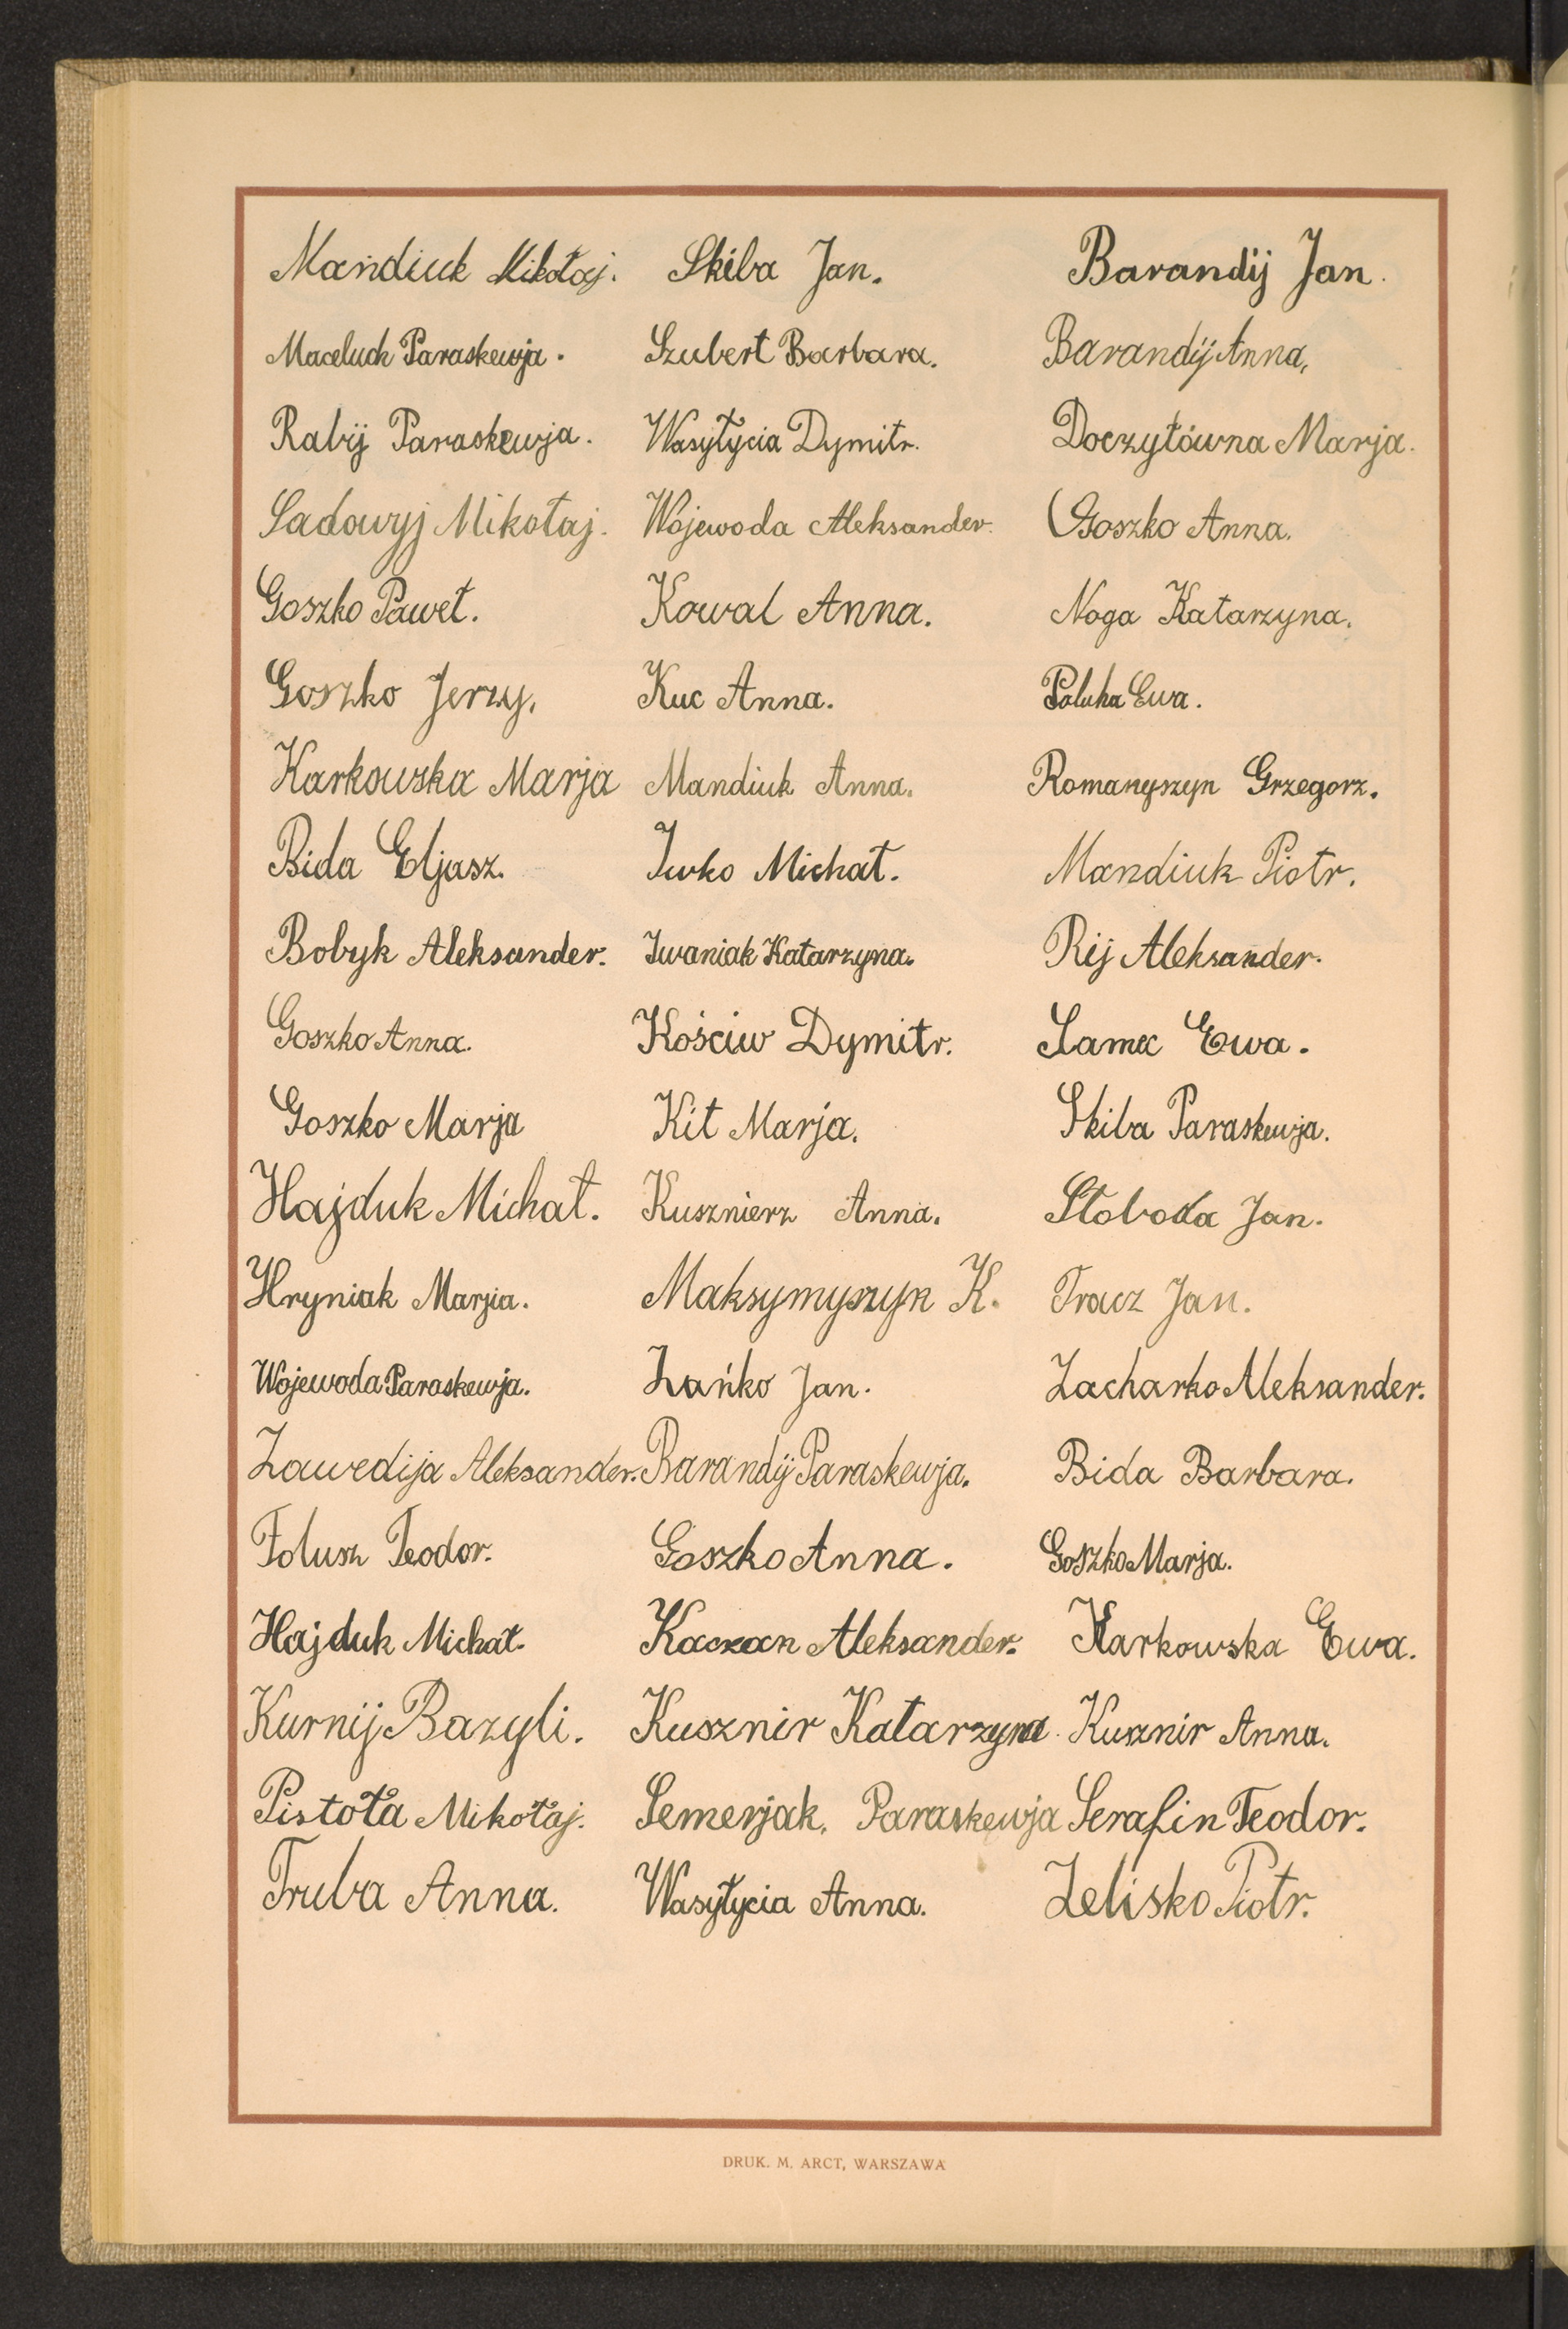 Mandiuk Mikołaj. Skiba Jan. Barandij Jan.
Maceluch Paraskewja. Szubert Barbara. Barandij Anna.
Rabij Paraskewja. Wasyłycia Dymitr. Doczyłówna Marja.
Sadowyj Mikołaj. Wojewoda Aleksander. Goszko Anna.
Goszko Paweł. Kowal Anna. Noga Katarzyna.
Goszko Jerzy. Kuc Anna. Poluha Ewa.
Karkowska Marja Mandiuk Anna. Romanyszyn Grzegorz.
Bida Eljasz. Iwko Michał. Mandiuk Piotr.
Bobyk Aleksander. Iwaniak Katarzyna. Rij Aleksander.
Goszko Anna. Kościw Dymitr. Samec Ewa.
Goszko Marja Kit Marja. Skiba Paraskewja.
Hajduk Michał. Kusznierz Anna. Słoboda Jan.
Hryniak Marja. Maksymyszyn K. Tracz Jan.
Wojewoda Paraskewja. Zańko Jan. Zacharko Aleksander.
Zawedija Aleksander. Barandij Paraskewja. Bida Barbara.
Folusz Teodor. Goszko Anna. Goszko Marja.
Hajduk Michał. Kaczan Aleksander. Karkowska Ewa.
Kurnij Bazyli. Kusznir Katarzyna. Kusznir Anna.
Pistoła Mikołaj. Semerjak. Paraskewja Serafin Teodor.
Truba Anna. Wasyłycia Anna. Zelisko Piotr.
DRUK. M. ARCT, WARSZAWA